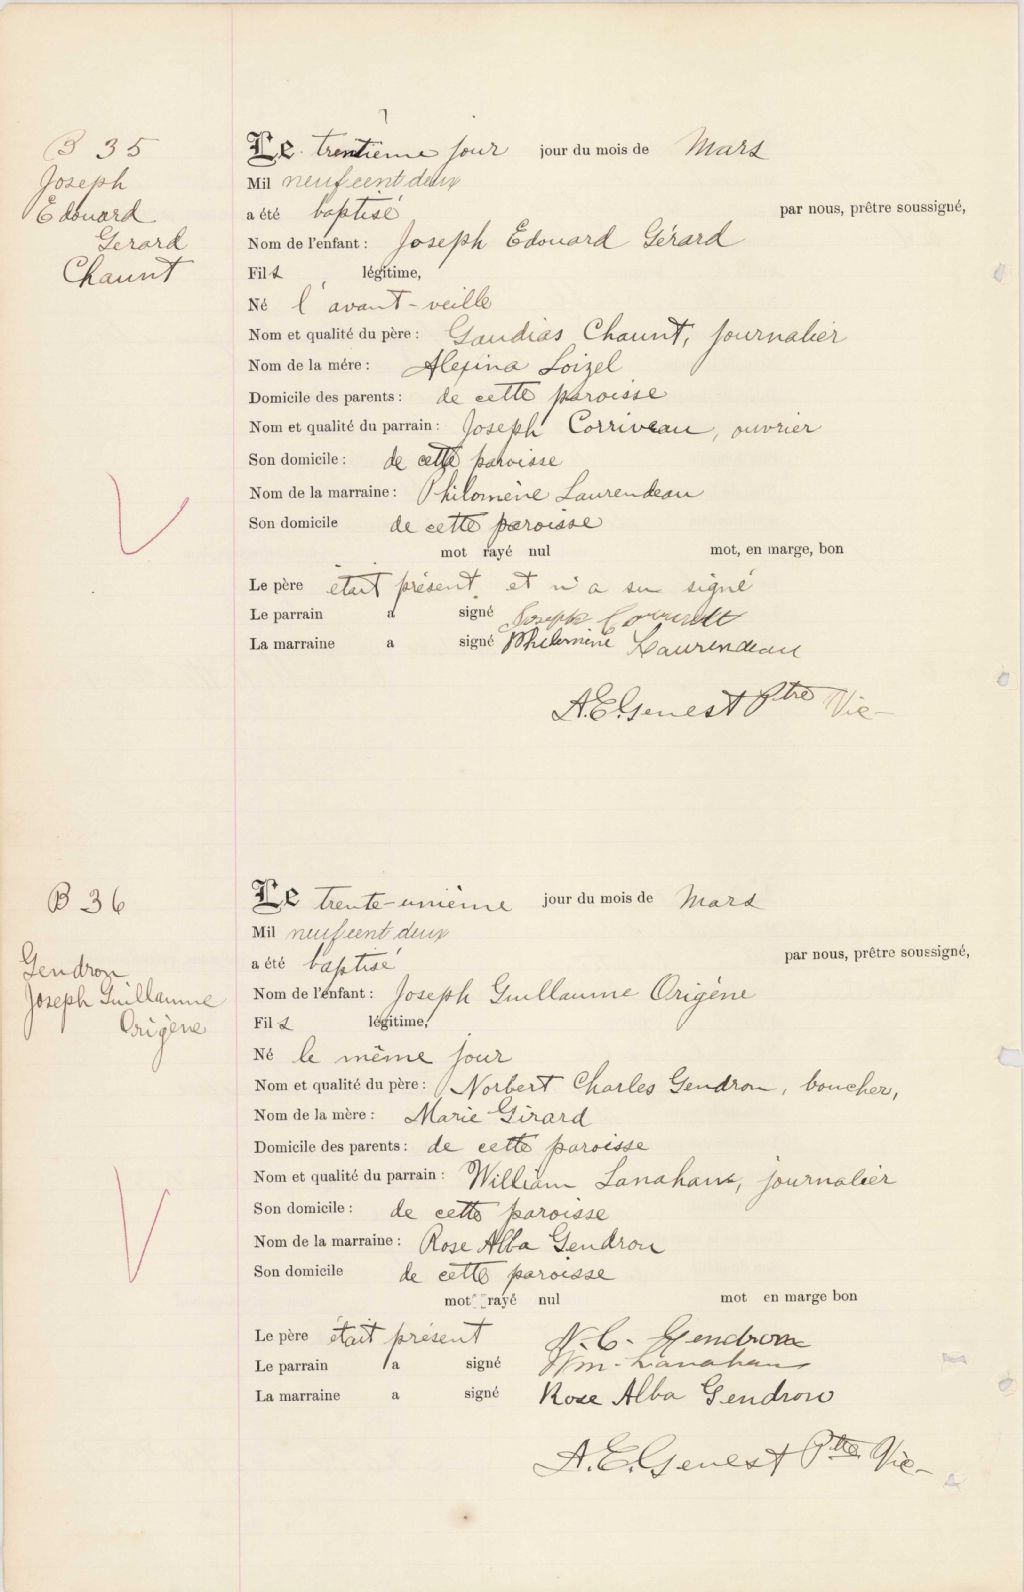 B 35
Joseph
Edouard
Gerard
Chaunt
Le trentième jour jour du mois de Mars
Mil neufcent deux
a été baptisé par nous, prêtre soussigné,
Nom de l'enfant : Joseph Edouard Gérard
Fils légitime,
Né l'avant-veille
Nom et qualité du père : Gaudias Chaunt, journalier
Nom de la mére : Alexina Loizel
Domicile des parents : de cette paroisse
Nom et qualité du parrain : Joseph Corriveau, ouvrier
Son domicile : de cette paroisse
Nom de la marraine : Philomène Laurendeau
Son domicile de cette paroisse
mot rayé nul mot, en marge, bon
Le père était présent et n'a su signé
Le parrain a signé Joseph
La marraine a signé Philomène Laurendeau
A.E.Genest Ptre Vic-
B 36
Gendron
Joseph Guillaume
Origène
Le trente-unième jour du mois de Mars
Mil neufcent deux
a été baptisé par nous, prêtre soussigné,
Nom de l'enfant : Joseph Guillaume Origène
Fils légitime,
Né le même jour
Nom et qualité du père : Norbert Charles Gendron, boucher,
Nom de la mère : Marie Girard
Domicile des parents : de cette paroisse
Nom et qualité du parrain : William Lanahan, journalier
Son domicile : de cette paroisse
Nom de la marraine : Rose Alba Gendron
Son domicile de cette paroisse
mot rayé nul mot en marge bon
Le père était présent N.C. Gendron
Le parrain a signé Wm. Lanahan
La marraine a signé Rose Alba Gendron
A.E.Genest Ptre Vic-